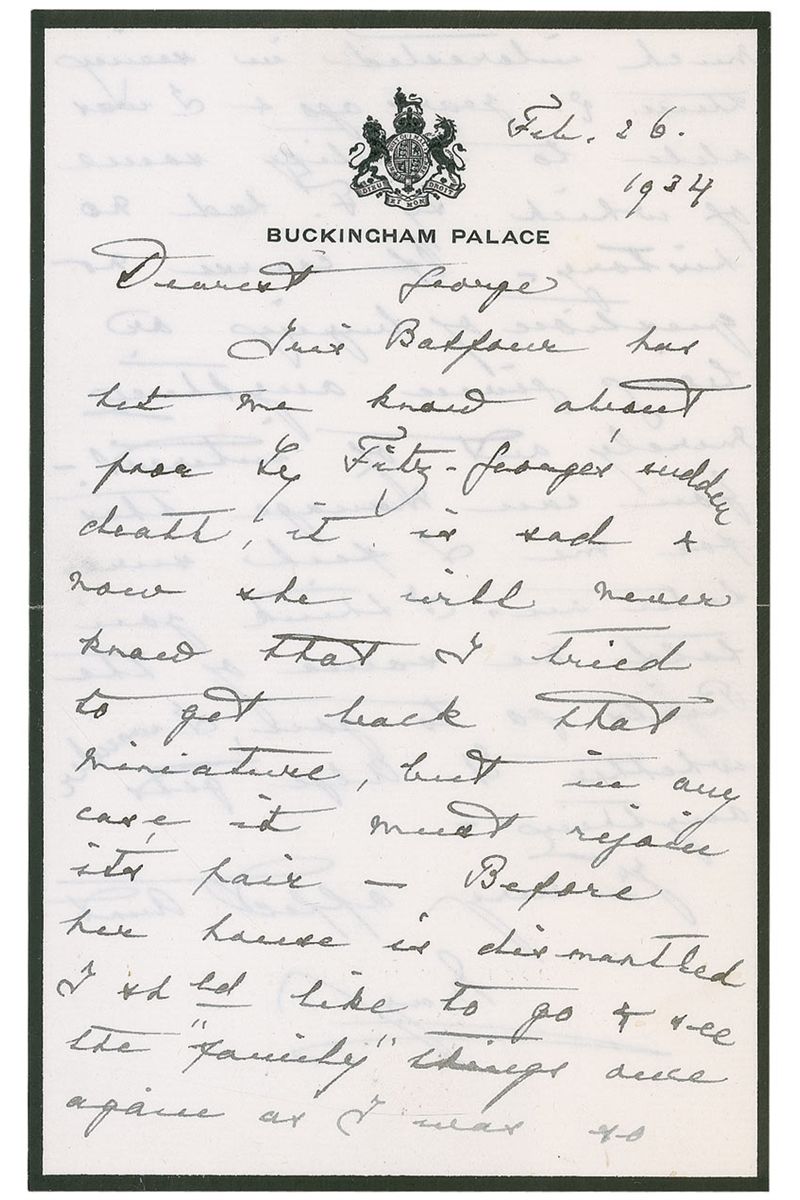 Feb. 26.
1934
DIEU ET MON DROIT
BUCKINGHAM PALACE
Dearest George
Iris Balfour has
let me know about
poor Ly Fitz-George's sudden
death, it is sad &
now she will never
know that I tried
to get back that
miniature, but in any
case it must rejoin
its pair — Before
her house is dismantled
I shld like to go & see
the "family" things once
again as I was so